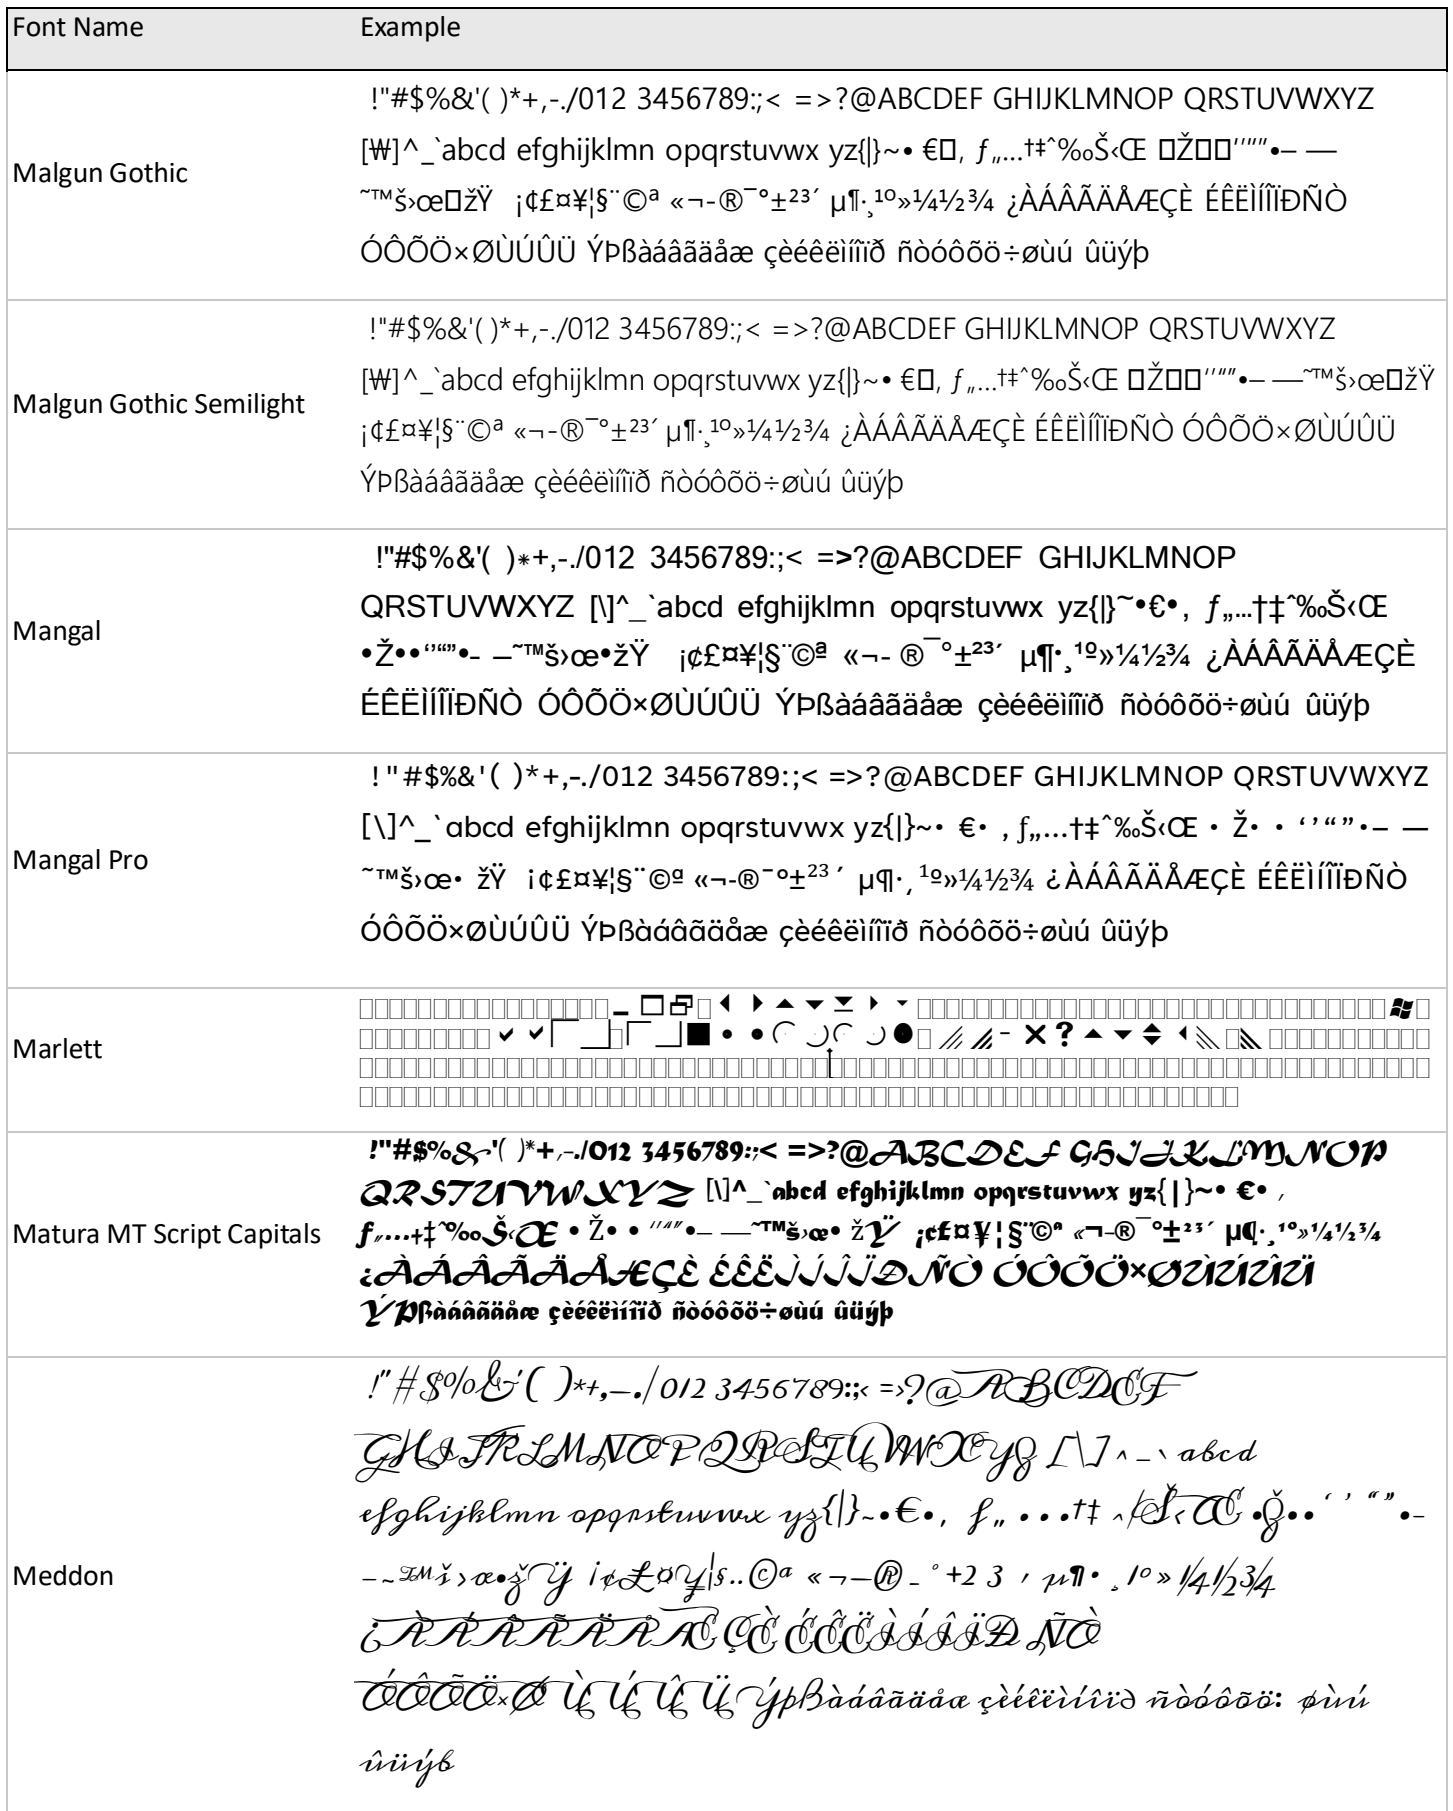 Font Name Example
!"#$%&'( )*+,-./012 3456789:;< =>?@ABCDEF GHIJKLMNOP QRSTUVWXYZ
Malgun Gothic
[₩]^_`abcd efghijklmn opqrstuvwx yz{|}~• €□, ƒ„…†‡ˆ‰Š‹Œ □Ž□□‘’“”•– —
˜™š›œ□žŸ ¡¢£¤¥¦§¨©ª «¬-®¯°±²³´ µ¶·¸¹º»¼½¾ ¿ÀÁÂÃÄÅÆÇÈ ÉÊËÌÍÎÏÐÑÒ
ÓÔÕÖ×ØÙÚÛÜ ÝÞßàáâãäåæ çèéêëìíîïð ñòóôõö÷øùú ûüýþ
!"#$%&'( )*+,-./012 3456789:;< =>?@ABCDEF GHIJKLMNOP QRSTUVWXYZ
Malgun Gothic Semilight
[₩]^_`abcd efghijklmn opqrstuvwx yz{|}~• €□, ƒ„…†‡ˆ‰Š‹Œ □Ž□□‘’“”•– —˜™š›œ□žŸ
¡¢£¤¥¦§¨©ª «¬-®¯°±²³´ µ¶·¸¹º»¼½¾ ¿ÀÁÂÃÄÅÆÇÈ ÉÊËÌÍÎÏÐÑÒ ÓÔÕÖ×ØÙÚÛÜ
ÝÞßàáâãäåæ çèéêëìíîïð ñòóôõö÷øùú ûüýþ
!"#$%&'( )*+,-./012 3456789:;< =>?@ABCDEF GHIJKLMNOP
Mangal
QRSTUVWXYZ [\]^_`abcd efghijklmn opqrstuvwx yz{|}~•€•, ƒ„…†‡ˆ‰Š‹Œ
•Ž••‘’“”•– —˜™š›œ•žŸ ¡¢£¤¥¦§¨©ª «¬- ®¯°±²³´ µ¶·¸¹º»¼½¾ ¿ÀÁÂÃÄÅÆÇÈ
ÉÊËÌÍÎÏÐÑÒ ÓÔÕÖ×ØÙÚÛÜ ÝÞßàáâãäåæ çèéêëìíîïð ñòóôõö÷øùú ûüýþ
!"#$%&'( )*+,-./012 3456789:;< =>?@ABCDEF GHIJKLMNOP QRSTUVWXYZ
Mangal Pro
[\]^_`abcd efghijklmn opqrstuvwx yz{|}~• €• , ƒ„…†‡ˆ‰Š‹Œ • Ž• • ‘’“”•– —
˜™š›œ• žŸ ¡¢£¤¥¦§¨©ª «¬-®¯°±²³´ µ¶·¸¹º»¼½¾ ¿ÀÁÂÃÄÅÆÇÈ ÉÊËÌÍÎÏÐÑÒ
ÓÔÕÖ×ØÙÚÛÜ ÝÞßàáâãäåæ çèéêëìíîïð ñòóôõö÷øùú ûüýþ
Marlett
!"#$%&'( )*+,-./012 3456789:;< =>?@ABCDEF GHIJKLMNOP
Matura MT Script Capitals
QRSTUVWXYZ [\]^_`abcd efghijklmn opqrstuvwx yz{|}~• €• ,
ƒ„…†‡ˆ‰Š‹Œ • Ž• • ‘’“”•– —˜™š›œ• žŸ ¡¢£¤¥¦§¨©ª «¬-®¯°±²³´ µ¶·¸¹º»¼½¾
¿ÀÁÂÃÄÅÆÇÈ ÉÊËÌÍÎÏÐÑÒ ÓÔÕÖ×ØÙÚÛÜ
ÝÞßàáâãäåæ çèéêëìíîïð ñòóôõö÷øùú ûüýþ
!"#$%&'( )*+,-./012 3456789:;< =>?@ABCDEF
GHIJKLMNOP QRSTUVWXYZ [\]^_`abcd
efghijklmn opqrstuvwx yz{|}~•€•, ƒ„…†‡ˆ‰Š‹Œ •Ž••‘’“”•–
Meddon
—˜™š›œ•žŸ ¡¢£¤¥¦§¨©ª «¬-®¯°±23´ µ¶·¸1º»¼½¾
¿ÀÁÂÃÄÅÆÇÈ ÉÊËÌÍÎÏÐÑÒ
ÓÔÕÖ×ØÙÚÛÜ ÝÞßàáâãäåæ çèéêëìíîïð ñòóôõö÷øùú
ûüýþ